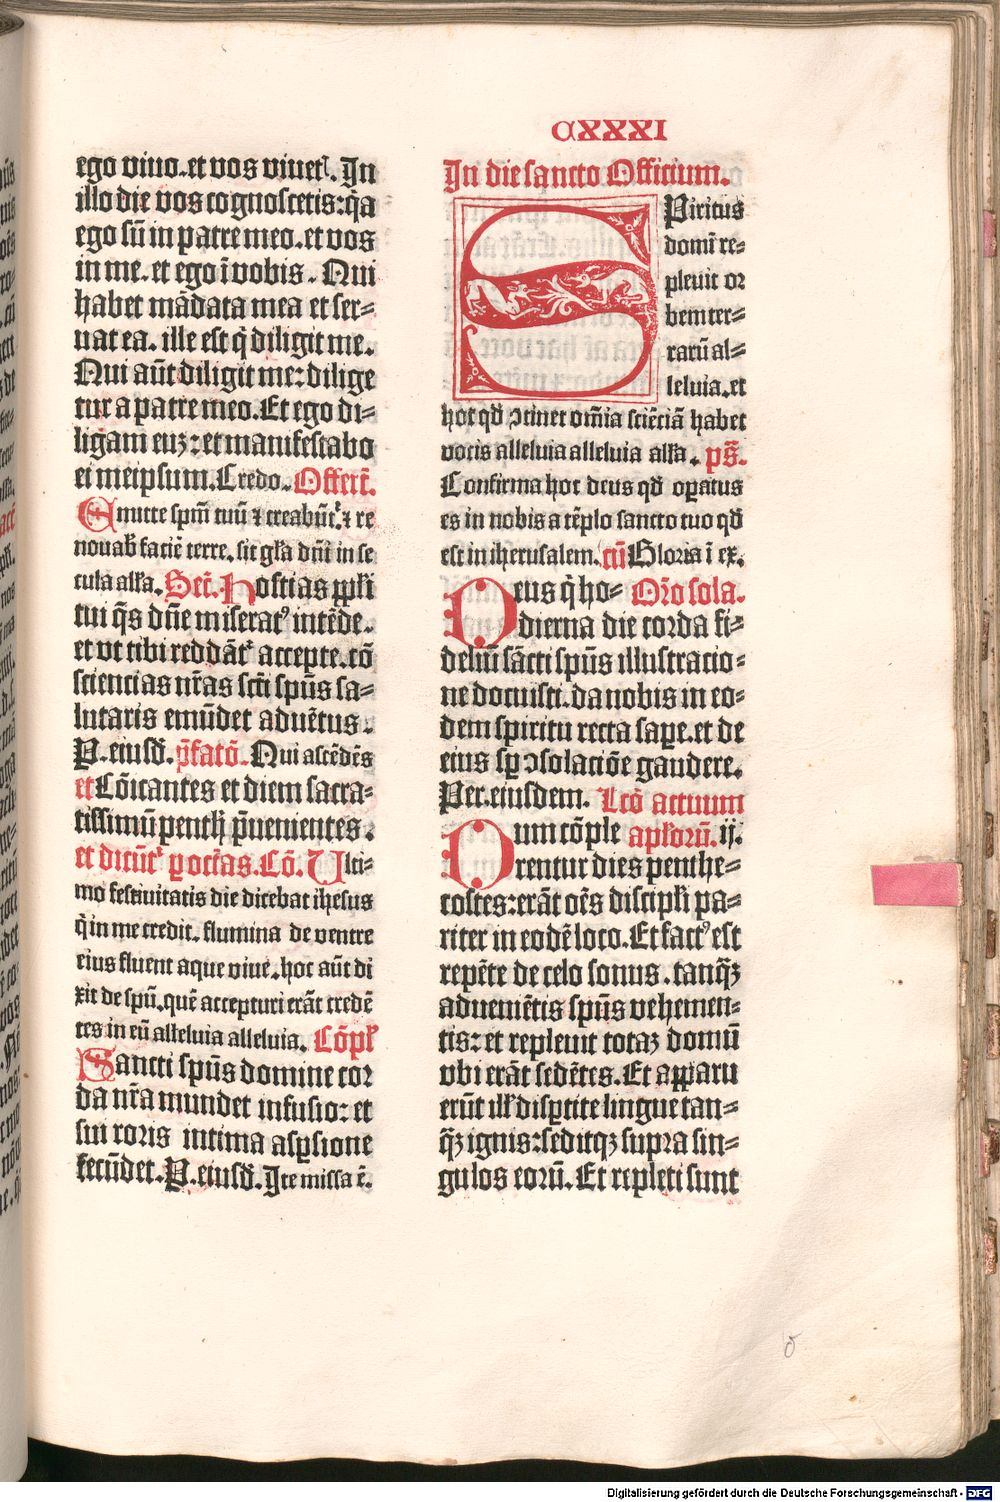 CXXXI
ego viuo. et vos viuetꝭ. In
illo die vos cognoscetis: q̃a
ego sũ in patre meo. et vos
in me. et ego ĩ vobis. Qui
habet mãdata mea et ser⸗
uat ea. ille est q̃ diligit me.
Qui aũt diligit me: dilige
tur a patre meo. Et ego di⸗
ligam euz: et manifestabo
ei meipsum. Credo. Offert̃.
Emitte spm̃ tuũ ⁊ creabũt̉. ⁊ re
nouab̃ faciẽ terre. sit gl̃a dñi in se
cula all̃a. Secr̃. Hostias ppl̃i
tui q̃s dñe miserat⁹ intẽde.
et vt tibi reddãt̉ accepte. cõ
sciencias nr̃as scti spũs sa⸗
lutaris emũdet aduẽtus.
P. eiusd̃. p̃fatõ. Qui ascẽdẽs
et Cõicantes et diem sacra⸗
tissimũ penth̃ p̃uenientes.
et dicũt̉ ꝑ octãs. Cõ. Ulti⸗
mo festiuitatis die dicebat ihesus
q̃ in me credit. flumina de ventre
eius fluent aque viue. hoc aũt di
xit de spũ. quẽ accepturi erãt credẽ
tes in eũ alleluia alleluia. Cõpl̃
Sancti spũs domine cor
da nr̃a mundet infusio: et
sui roris intima asꝑsione
fecũdet. P. eiusd̃. Ite missa ẽ.
In die sancto Officium.
SPiritus
domĩ re⸗
pleuit or
bem ter⸗
rarũ al⸗
leluia. et
hoc qd̃ ↄtinet om̃ia sciẽciã habet
vocis alleluia alleluia all̃a. ps̃.
Confirma hoc deus qd̃ oꝑatus
es in nobis a tẽplo sancto tuo qd̃
est in iherusalem. cũ Gloria ĩ ex.
Deus q̃ ho⸗ Or̃o sola.
dierna die corda fi⸗
deliũ sãcti spũs illustracio⸗
ne docuisti. da nobis in eo⸗
dem spiritu recta saꝑe. et de
eius sꝑ ↄsolaciõe gaudere.
Per. eiusdem. Lcõ actuum
Dum cõple apl̃orũ. ij.
rentur dies penthe⸗
costes: erãt oẽs discipl̃i pa⸗
riter in eodẽ loco. Et fact⁹ est
repẽte de celo sonus. tanq̃ꝫ
adueniẽtis spũs vehemen⸗
tis: et repleuit totaꝫ domũ
vbi erãt sedẽtes. Et apparu
erũt ill̃ disꝑtite lingue tan⸗
q̃ꝫ ignis: seditqꝫ supra sin⸗
gulos eorũ. Et repleti sunt
Digitalisierung gefördert durch die Deutsche Forschungsgemeinschaft - DFG